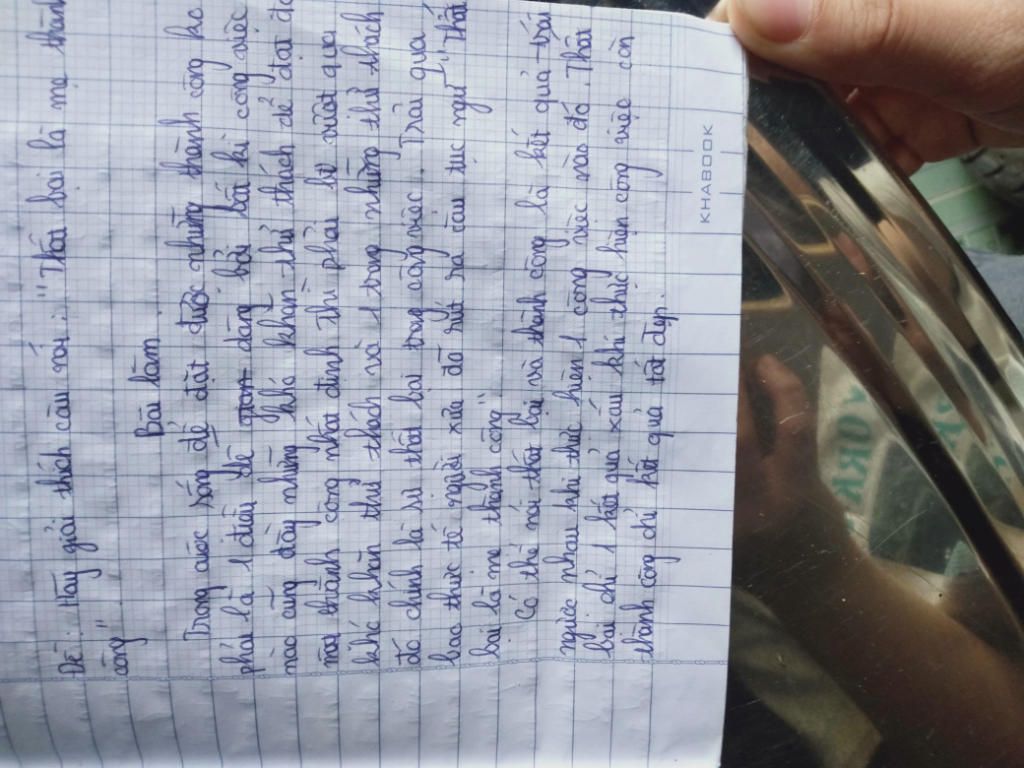 Đề: Hãy giải thích câu nói: "Thất bại là mẹ thành
công"
Bài làm
Trong cuộc sống để đạt được những thành công ko
phải là 1 điều dễ dàng bởi bất kì công việc
nào cũng đầy những khó khăn thử thách để đạt đc
mọi thành công nhất định thì phải là vượt qua
khó khăn thử thách và 1 trong những thử thách
đó chính là sự thất bại trong công việc. Trải qua
bao thực tế người xưa đã rút ra câu tục ngữ "Thất
bại là mẹ thành công"
Có thể nói thất bại và thành công là kết quả trái
ngược nhau khi thực hiện 1 công việc nào đó. Thất
bại chỉ 1 kết quả xấu khi thực hiện công việc còn
thành công chỉ kết quả tốt đẹp.
KHABOOK